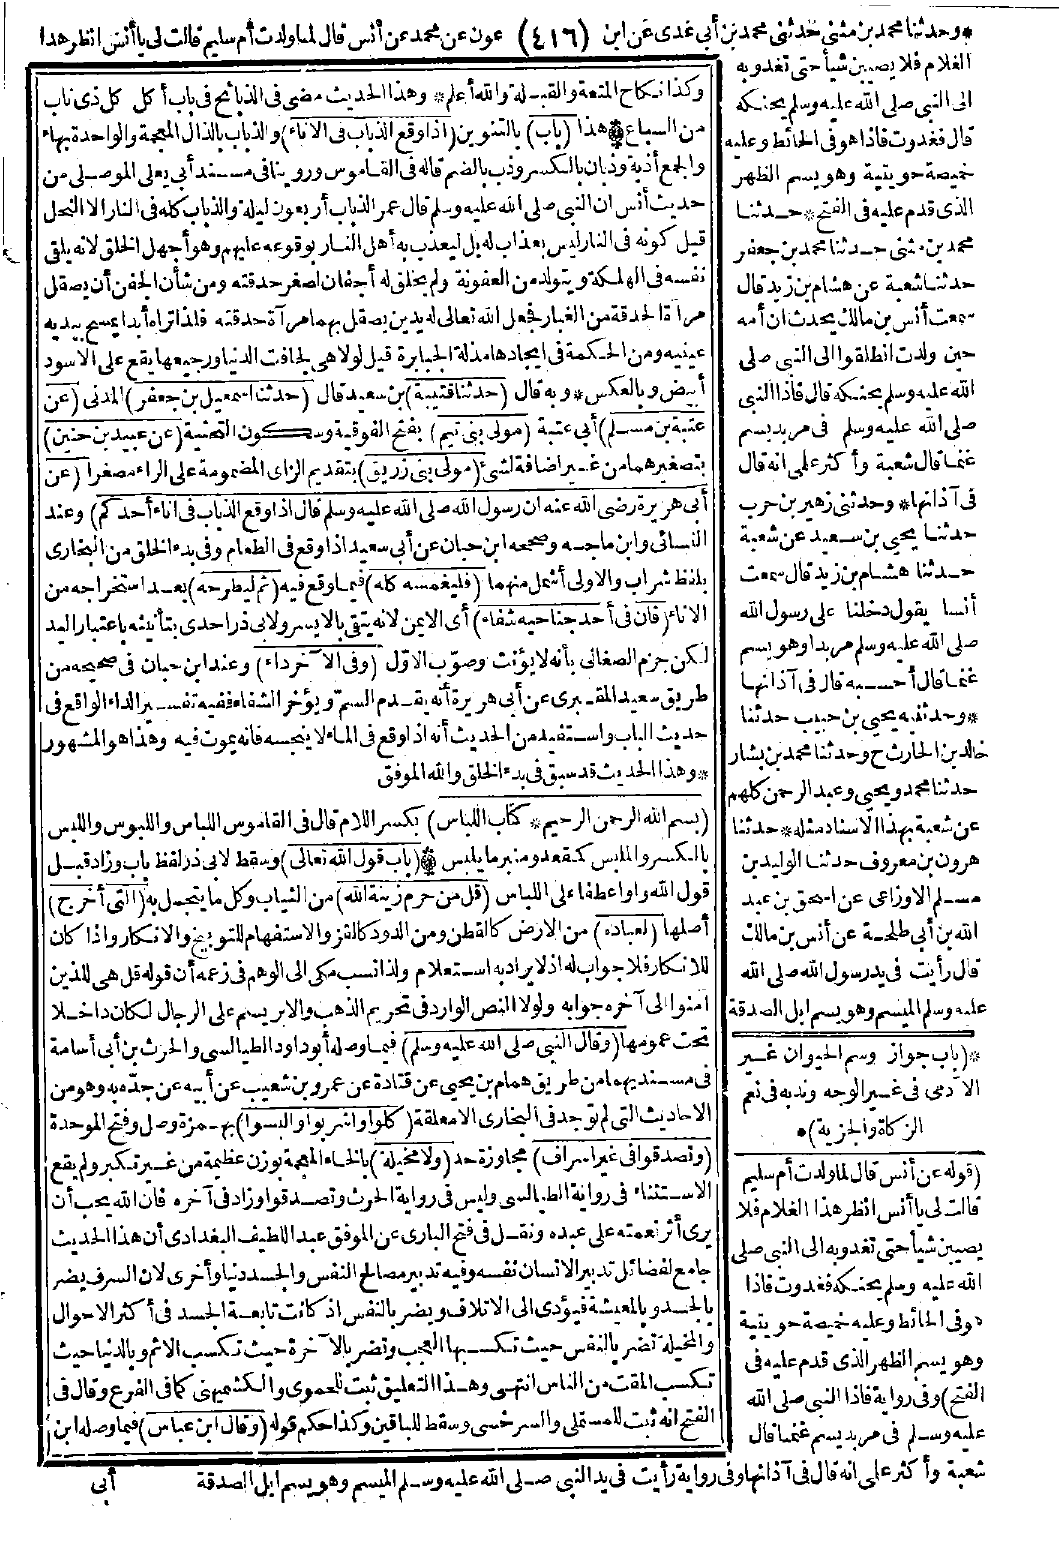 *وحدثنا محمد بن مثنى حدثني محمد بن أبي عدي عن ابن (٤١٦) عون عن محمد عن أنس قال لما ولدت أم سليم قالت لي يا أنس انظر هذا
الغلام فلا يصيبن شيأ حتى تغدو به
الى النبي صلى الله عليه وسلم يحنكه
قال فغدوت فاذا هو في الحائط وعليه
خميصة حويتية وهو يسم الظهر
الذي قدم عليه في الفتح * حدثنا
محمد بن مثنى حدثنا محمد بن جعفر
حدثنا شعبة عن هشام بن زيد قال
سمعت أنس بن مالك يحدث ان أمه
حين ولدت انطلقوا الى النبي صلى
الله عليه وسلم يحنكه قال فاذا النبي
صلى الله عليه وسلم في مربد يسم
غنما قال شعبة وأكثر علمي انه قال
في آذانها * وحدثني زهير بن حرب
حدثنا يحيى بن سعيد عن شعبة
حدثنا هشام بن زيد قال سمعت
أنسا يقول دخلنا على رسول الله
صلى الله عليه وسلم مربدا وهو يسم
غنما قال أحسبه قال في آذانها
*وحدثنيه يحيى بن حبيب حدثنا
خالد بن الحارث ح وحدثنا محمد بن بشار
حدثنا محمد ويحيى وعبد الرحمن كلهم
عن شعبة بهذا الاسناد مثله * حدثنا
هرون بن معروف حدثنا الوليد بن
مسلم الاوزاعي عن اسحق بن عبد
الله بن أبي طلحة عن أنس بن مالك
قال رأيت في يد رسول الله صلى الله
عليه وسلم الميسم وهو يسم ابل الصدقة
*(باب جواز وسم الحيوان غير
الآدمي في غير الوجه وندبه في نعم
الزكاة والجزية)*
(قوله عن أنس قال لما ولدت أم سليم
قالت لي يا أنس انظر هذا الغلام فلا
يصيبن شيأ حتى تغدو به الى النبي صلى
الله عليه وسلم يحنكه فغدوت فاذا
هو في الحائط وعليه خميصة حويتية
وهو يسم الظهر الذي قدم عليه في
الفتح) وفي رواية فاذا النبي صلى الله
عليه وسلم في مربد يسم غنما قال
شعبة وأكثر علمي انه قال في آذانها وفي رواية رأيت في يد النبي صلى الله عليه وسلم الميسم وهو يسم ابل الصدقة
وكذا نكاح المتعة والقبلة والله أعلم * وهذا الحديث مضى في الذبائح في باب أكل كل ذي ناب
من السباع * هذا (باب) بالتنوين (اذا وقع الذباب في الاناء) والذباب بالذال المعجمة والواحدة بهاء
والجمع أذبة وذبان بالكسر وذب بالضم قاله في القاموس وروينا في مسند أبي يعلى الموصلي من
حديث أنس ان النبي صلى الله عليه وسلم قال عمر الذباب أربعون ليلة والذباب كله في النار الا النحل
قيل كونه في النار ليس بعذاب له بل ليعذب به أهل النار بوقوعه عليهم وهو أجهل الخلق لانه يلقي
نفسه في الهلكة ويتولد من العفونة ولم يخلق له أجفان لصغر حدقته ومن شأن الجفن أن يصقل
مرآة الحدقة من الغبار فجعل الله تعالى له يدين يصقل بهما مرآة حدقته فلذا تراه أبدا يمسح بيديه
عينيه ومن الحكمة في ايجادها مذلة الجبابرة قيل لولا هي لجافت الدنيا ورجيعها يقع على الاسود
أبيض وبالعكس * وبه قال (حدثنا قتيبة) بن سعيد قال (حدثنا اسمعيل بن جعفر) المدني (عن
عتبة بن مسلم) أبي عتبة (مولى بني تيم) بفتح الفوقية وسكون التحتية (عن عبيد بن حنين)
بتصغيرهما من غير اضافة لشئ (مولى بني زريق) بتقديم الزاي المضمومة على الراء مصغرا (عن
أبي هريرة رضي الله عنه ان رسول الله صلى الله عليه وسلم قال اذا وقع الذباب في اناء أحدكم) وعند
النسائي وابن ماجه وصححه ابن حبان عن أبي سعيد اذا وقع في الطعام وفي بدء الخلق من البخاري
بلفظ شراب والاولى أشمل منهما (فليغمسه كله) فيما وقع فيه (ثم ليطرحه) بعد استخراجه من
الاناء (فان في أحد جناحيه شفاء) أي الايمن لانه يتقي بالايسر ولابي ذر احدى بتأنيثه باعتبار اليد
لكن جزم الصغاني بأنه لا يؤنث وصوّب الاول (وفي الآخر داء) وعند ابن حبان في صحيحه من
طريق سعيد المقبري عن أبي هريرة أنه يقدم السم ويؤخر الشفاء ففيه تفسير الداء الواقع في
حديث الباب واستفيد من الحديث أنه اذا وقع في الماء لا ينجسه فانه يموت فيه وهذا هو المشهور
*وهذا الحديث قد سبق في بدء الخلق والله الموفق
(بسم الله الرحمن الرحيم * كتاب اللباس) بكسر اللام قال في القاموس اللباس واللبوس واللبس
بالكسر والملبس كمقعد ومنبر ما يلبس * (باب قول الله تعالى) وسقط لابي ذر لفظ باب وزاد قبل
قول الله واوا عطفا على اللباس (قل من حرم زينة الله) من الثياب وكل ما يتجمل به (التي أخرج)
أصلها (لعباده) من الارض كالقطن ومن الدود كالقز والاستفهام للتوبيخ والانكار واذا كان
للانكار فلا جواب له اذ لا يراد به استعلام ولذا نسب مكي الى الوهم في زعمه أن قوله قل هي للذين
آمنوا الى آخره جوابه ولولا النص الوارد في تحريم الذهب والابريسم على الرجال لكان داخلا
تحت عمومها (وقال النبي صلى الله عليه وسلم) فيما وصله أبو داود الطيالسي والحرث بن أبي أسامة
في مسنديهما من طريق همام بن يحيى عن قتادة عن عمرو بن شعيب عن أبيه عن جدّه به وهو من
الاحاديث التي لم توجد في البخاري الا معلقة (كلوا واشربوا والبسوا) بهمزة وصل وفتح الموحدة
(وتصدقوا في غير اسراف) مجاوزة حد (ولا مخيلة) بالخاء المعجمة بوزن عظيمة من غير تكبر ولم يقع
الاستثناء في رواية الطيالسي وليس في رواية الحرث وتصدقوا وزاد في آخره فان الله يحب أن
يرى أثر نعمته على عبده ونقل في فتح الباري عن الموفق عبد اللطيف البغدادي أن هذا الحديث
جامع لفضائل تدبير الانسان نفسه وفيه تدبير مصالح النفس والجسد دنيا وأخرى لان السرف يضر
بالجسد وبالمعيشة فيؤدي الى الاتلاف ويضر بالنفس اذ كانت تابعة الجسد في أكثر الاحوال
والمخيلة تضر بالنفس حيث تكسبها العجب وتضر بالآخرة حيث تكسب الاثم وبالدنيا حيث
تكسب المقت من الناس انتهى وهذا التعليق ثبت للحموي والكشميهني كما في الفرع وقال في
الفتح انه ثبت للمستملي والسرخسي وسقط للباقين وكذا حكم قوله (وقال ابن عباس) فيما وصله ابن
أبي